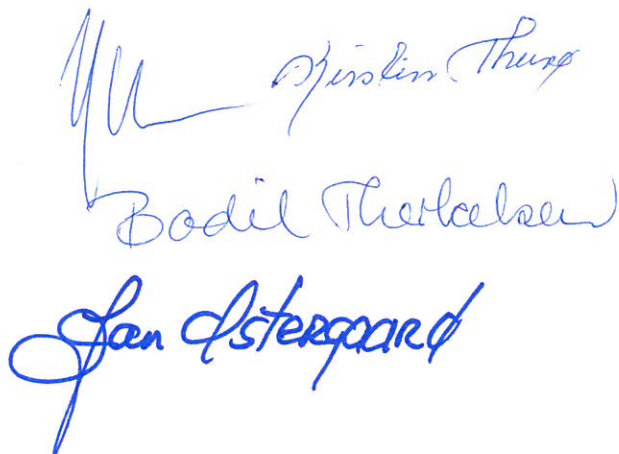 Kirsten Thurø
Bodil Therkelsen
Jan Østergaard